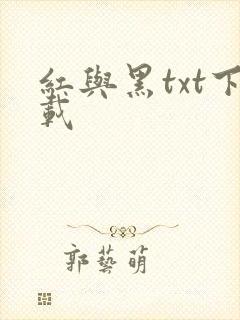 紅與黑txt下
載
郭藝萌